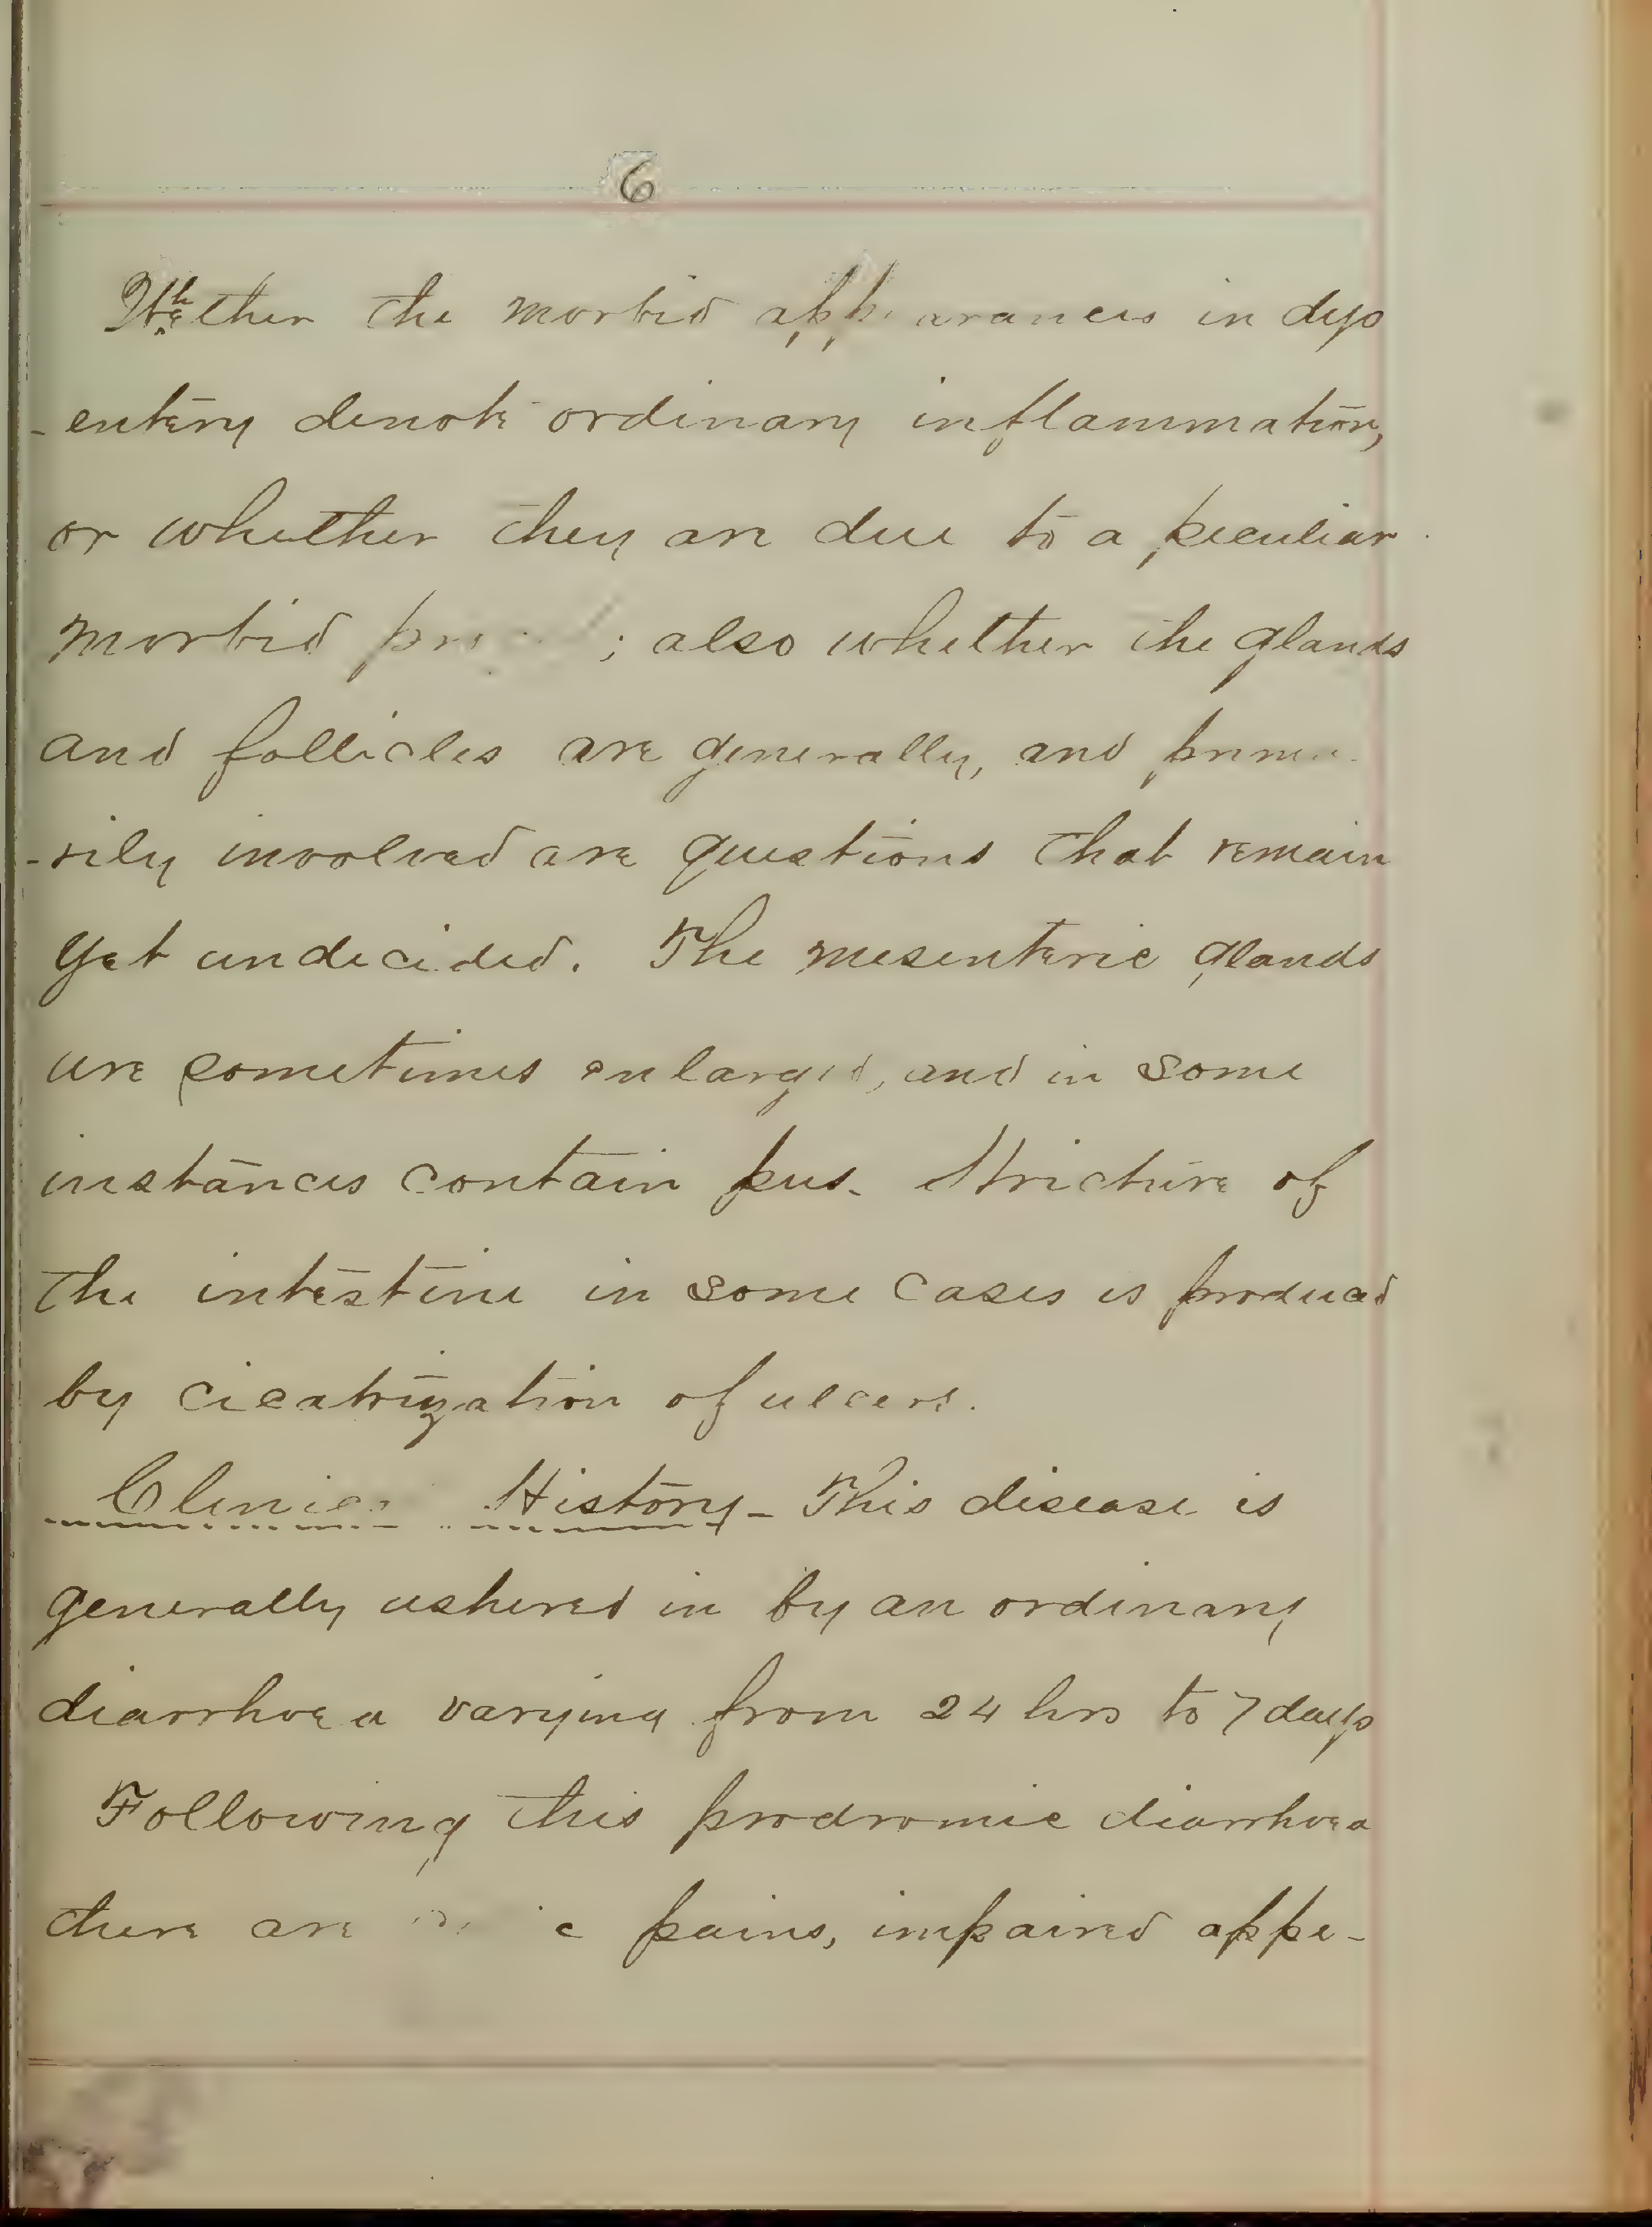 6
Whether the morbid appearances in dys
-entery denote ordinary inflammation,
or whether they are due to a peculiar
morbid ; also whether the glands
and follicles are generally, and prima
-rily involved are questions that remain
yet undecided. The mesenteric glands
are sometimes enlarged, and in some
instances contain pus. Stricture of
the intestine in some cases is produced
by cicatrization of ulcers.
Clinical History - This disease is
generally ushered in by an ordinary
diarrhoea varying from 24 hrs to 7 days
Following this prodromic diarrhoea
there are pains, impaired appe-